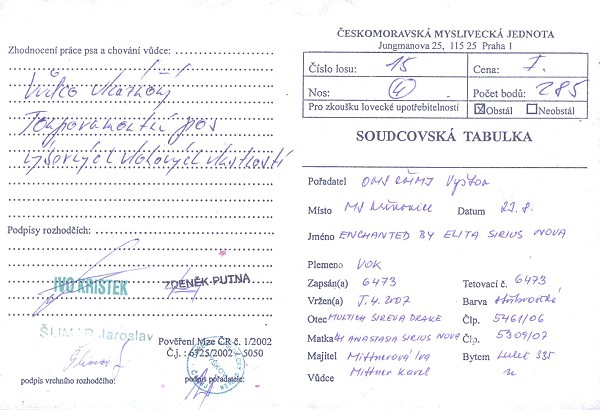 Zhodnocení práce psa a chování vůdce:
Temperamentní pes
výborných vlohových vlastností
Podpisy rozhodčích:
IVO KRIŠTEK
ZDENĚK PUTNA
Jaroslav
Pověření Mze ČR č. 1/2002
Č.j.: 6725/2002 - 5050
podpis vrchního rozhodčího:
podpis pořadatele:
ČESKOMORAVSKÁ MYSLIVECKÁ JEDNOTA
Jungmanova 25, 115 25 Praha 1
Číslo losu: 15 Cena: I.
Nos: 4 Počet bodů: 285
Pro zkoušku lovecké upotřebitelnosti ☒ Obstál ☐ Neobstál
SOUDCOVSKÁ TABULKA
Pořadatel OMS ČMMJ Vyškov
Místo MS Datum 23.8.
Jméno ENCHANTED BY ELITA SIRIUS NOVA
Plemeno VOK
Zapsán(a) 6473 Tetovací č. 6473
Vržen(a) 5.4.2007 Barva
Otec SIREVA DRAKE Člp. 5461/06
Matka ANASTASIA SIRIUS NOVA Člp. 5309/07
Majitel Mittnerová Iva Bytem 335
Vůdce Mittner Karel